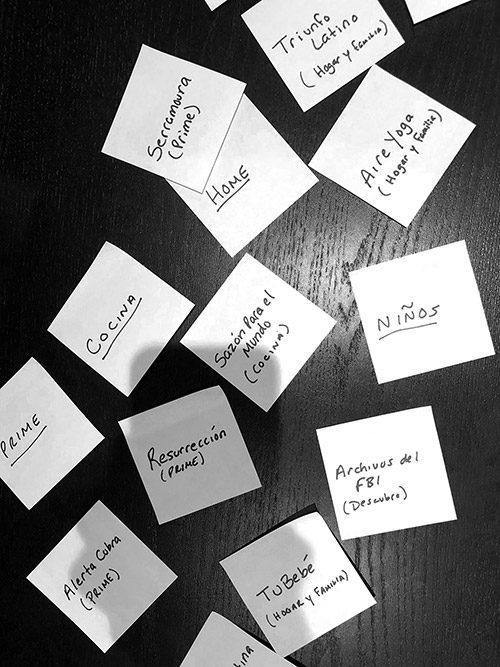 Triunfo
Latino
(Hogar y Familia)
Serramoura
(Prime)
HOME
Aire Yoga
(Hogar y Familia)
COCINA
Sazón Para el
Mundo
(COCINA)
NIÑOS
PRIME
Resurrección
(PRIME)
Archivos del
FBI
(Descubre)
Alerta Cobra
(PRIME)
Tu Bebé
(HOGAR Y FAMILIA)